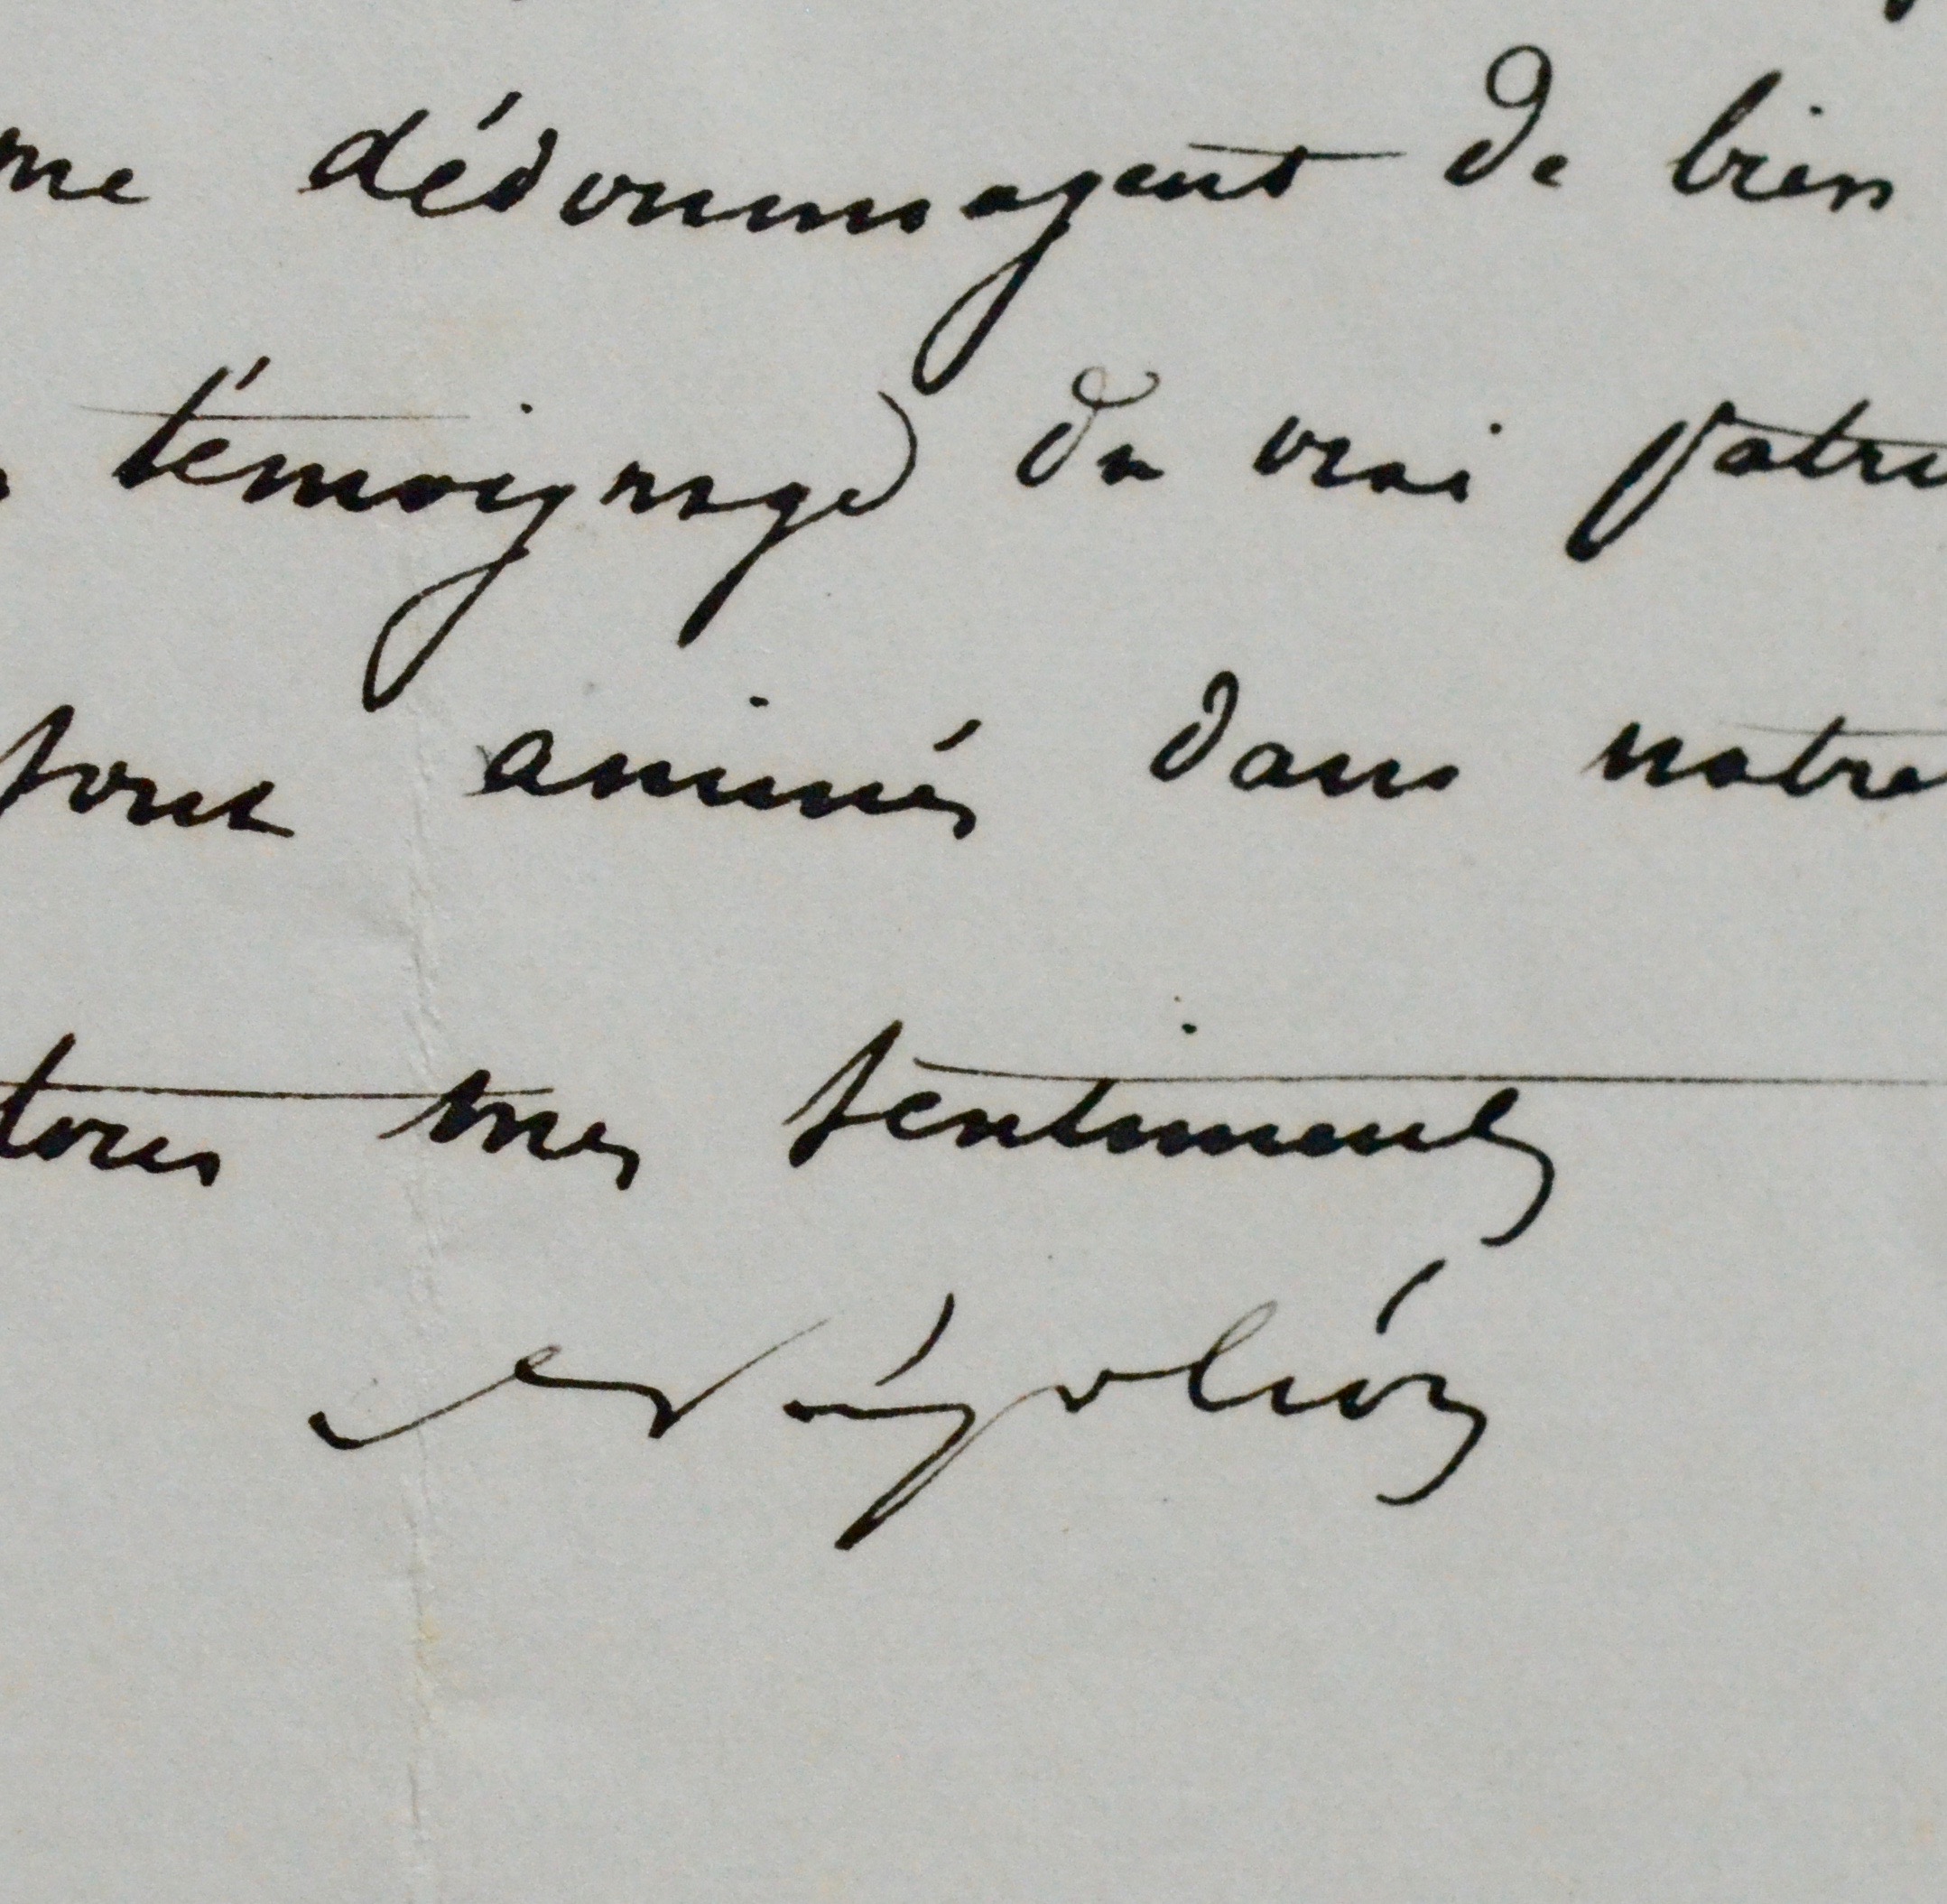 me dédommagent de bien
témoignage du vrai patrio
sont animés dans notre
tous mes sentiments
Napoléon